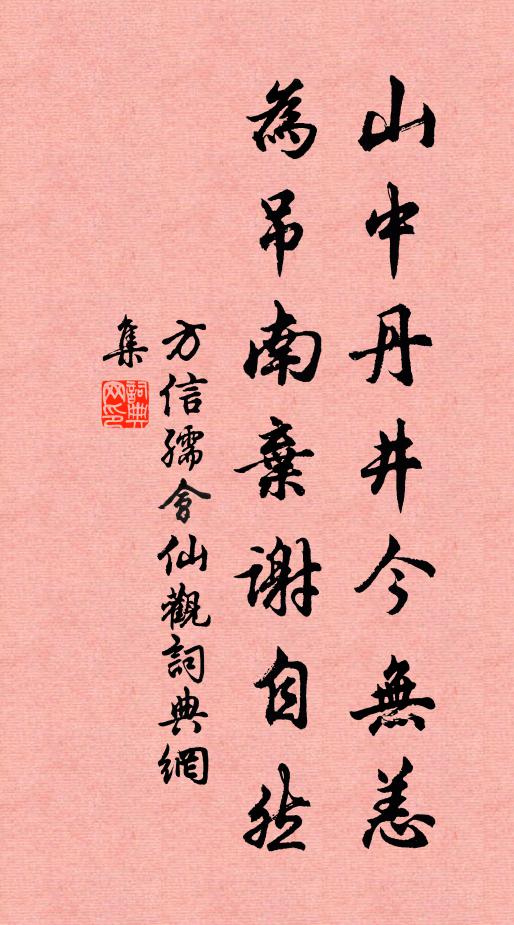 山中丹井今無恙
為吊南棄謝自然
方信孺會仙觀詞典網
集
詞典網印